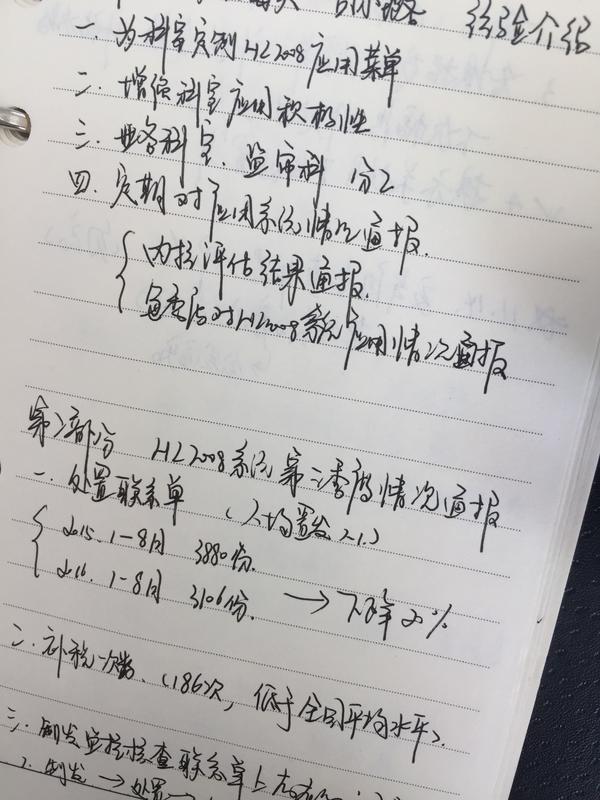 经验介绍
一. 为科室定制HL2008应用菜单
二. 增强科室应用积极性
三. 业务科室、监审科 分工
四. 定期对应用系统情况通报.
内控评估结果通报.
对HL2008系统应用情况通报
第二部分 HL2008系统第三季度情况通报
一. 处置联系单
2015. 1-8月 3880份.
2016. 1-8月 3106份. → 下降20%
二. 补税次数. (186次, 低于全国平均水平).
三. 制发监控核查联系单
1. 制发 → 处置 →